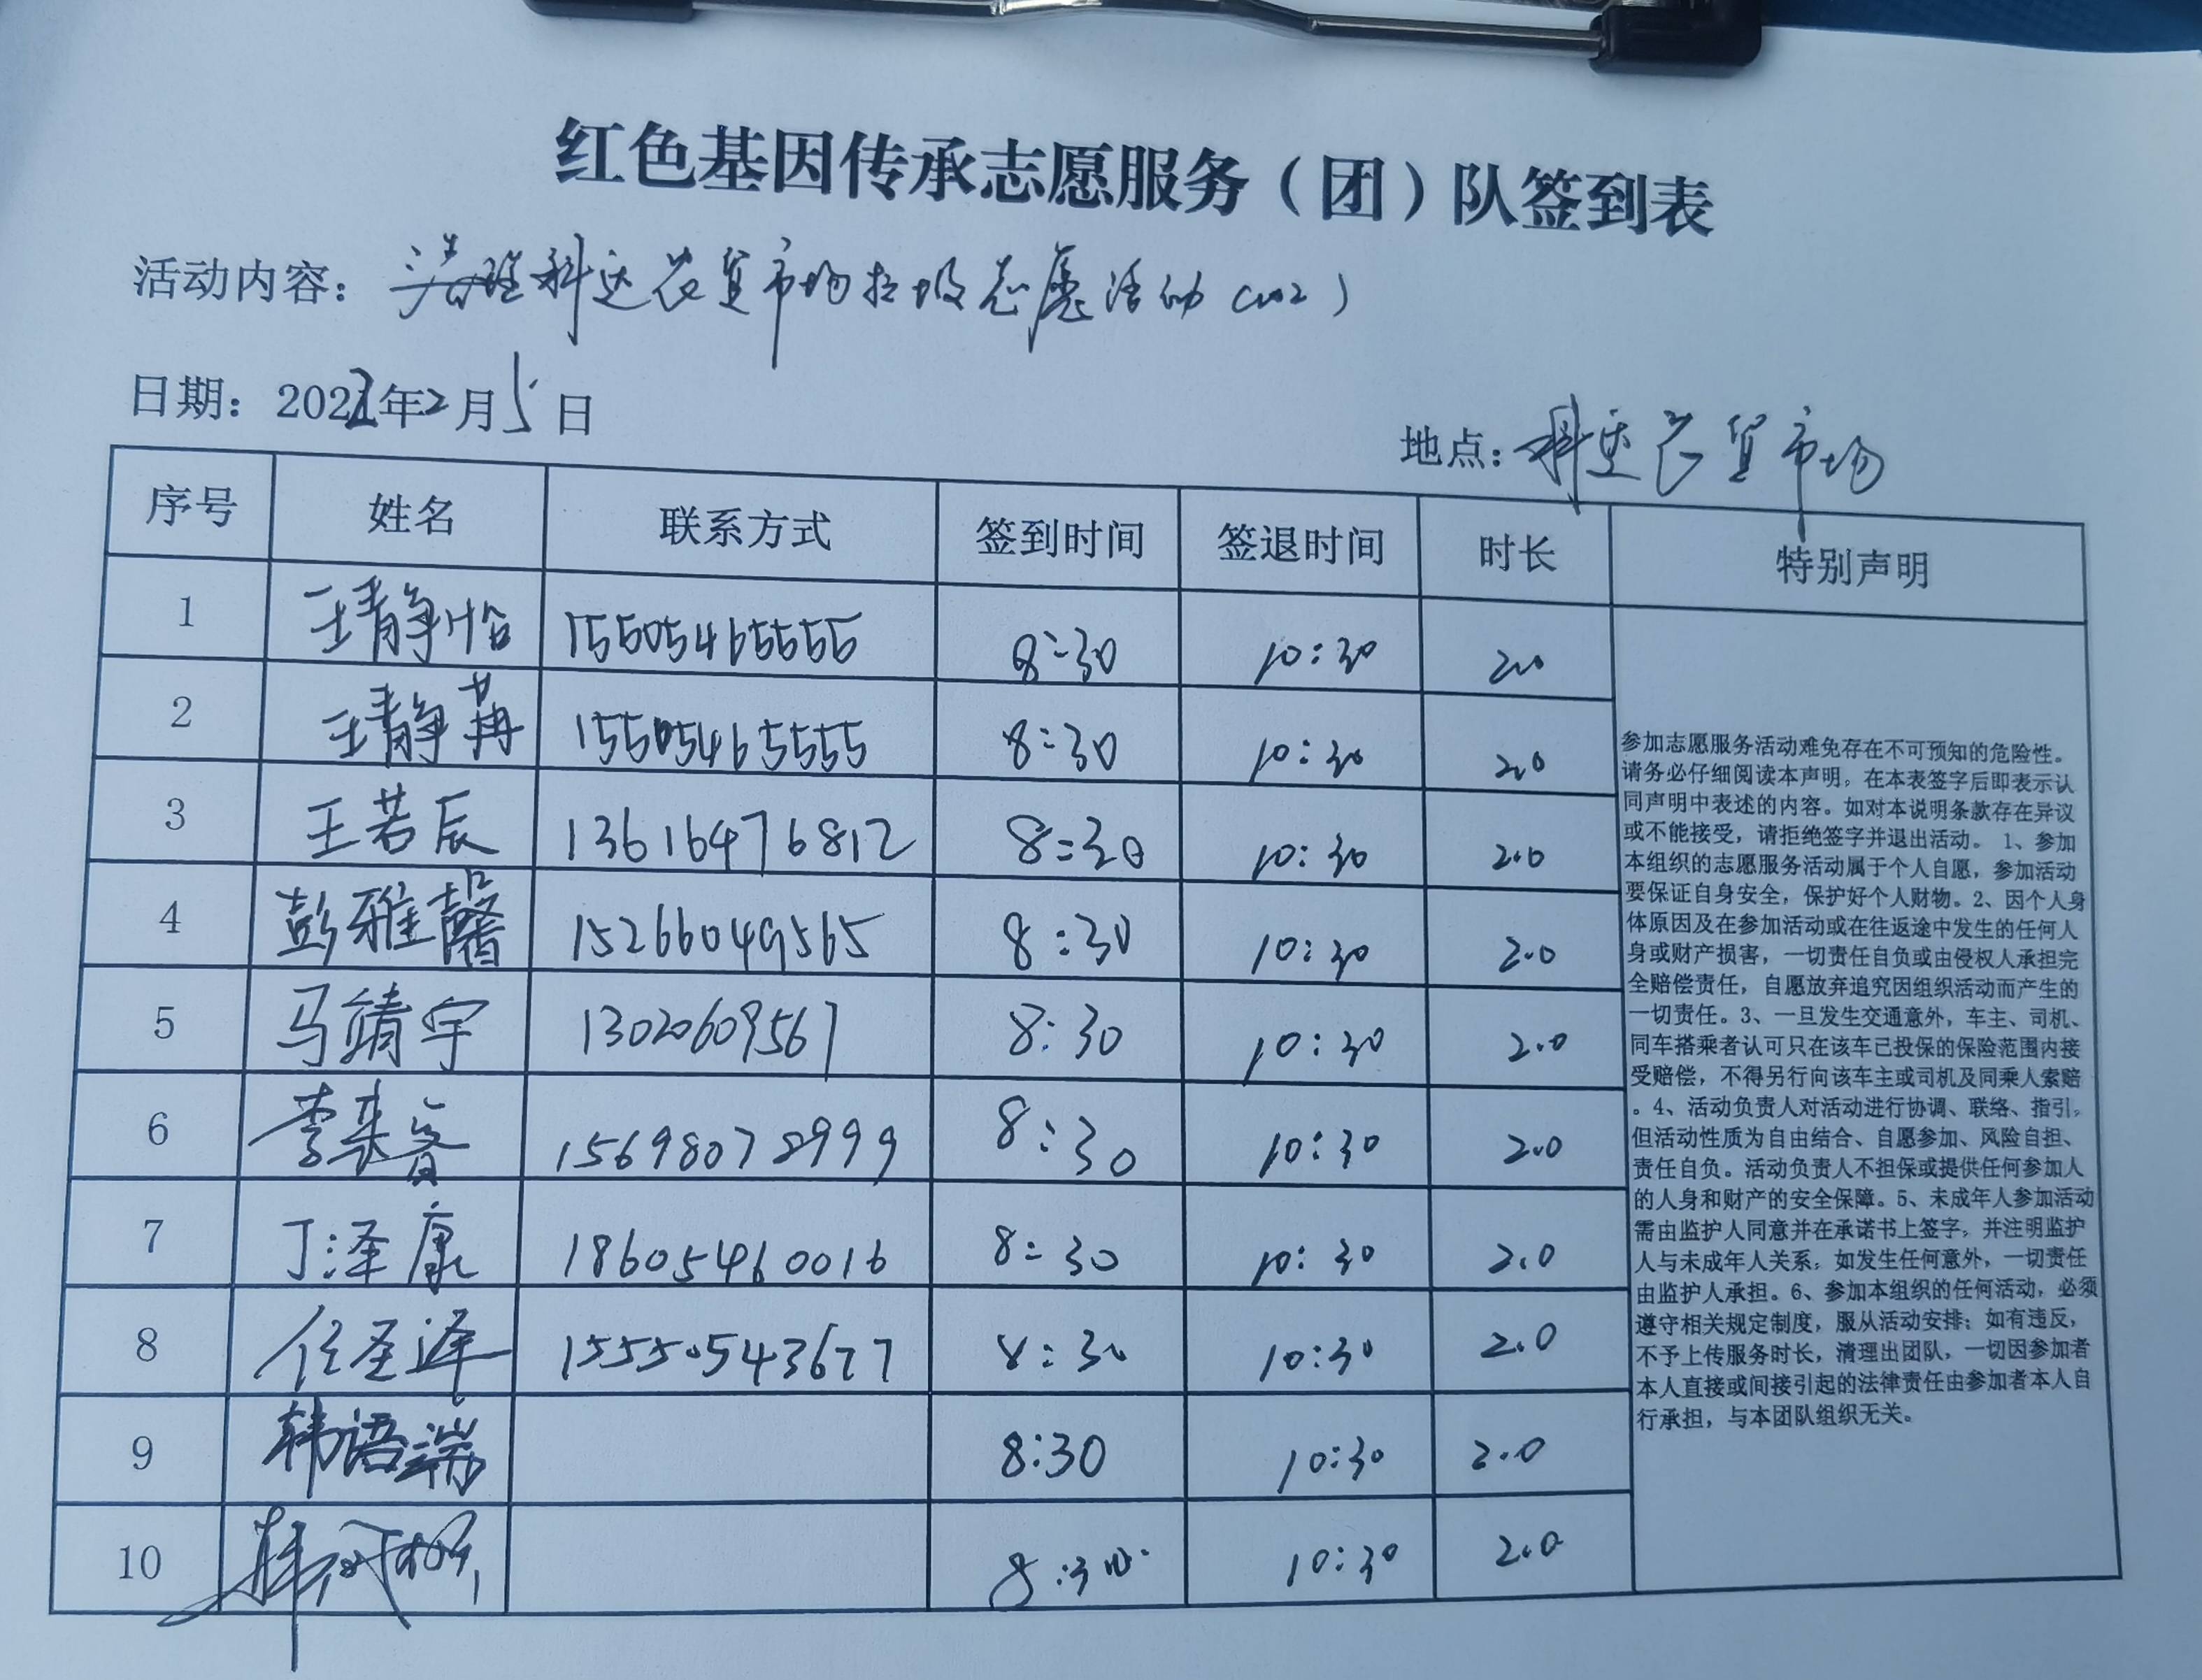 红色基因传承志愿服务（团）队签到表
活动内容：清理科达农贸市场垃圾志愿活动（002）
日期：2022年2月5日
地点：科达农贸市场
序号 姓名 联系方式 签到时间 签退时间 时长 特别声明
1 王靖怡 15505465555 8:30 10:30 2.0
2 王靖苒 15505465555 8:30 10:30 2.0
3 王若辰 13616476812 8:30 10:30 2.0
4 彭雅馨 15266049565 8:30 10:30 2.0
5 马靖宇 1302609567 8:30 10:30 2.0
6 李来睿 15698078999 8:30 10:30 2.0
7 丁泽康 18605460016 8:30 10:30 2.0
8 任圣泽 15550543677 8:30 10:30 2.0
9 韩语湍 8:30 10:30 2.0
10 韩 8:30 10:30 2.0
参加志愿服务活动难免存在不可预知的危险性。
请务必仔细阅读本声明。在本表签字后即表示认
同声明中表述的内容。如对本说明条款存在异议
或不能接受，请拒绝签字并退出活动。 1、参加
本组织的志愿服务活动属于个人自愿，参加活动
要保证自身安全，保护好个人财物。2、因个人身
体原因及在参加活动或在往返途中发生的任何人
身或财产损害，一切责任自负或由侵权人承担完
全赔偿责任，自愿放弃追究因组织活动而产生的
一切责任。3、一旦发生交通意外，车主、司机、
同车搭乘者认可只在该车已投保的保险范围内接
受赔偿，不得另行向该车主或司机及同乘人索赔
。4、活动负责人对活动进行协调、联络、指引。
但活动性质为自由结合、自愿参加、风险自担、
责任自负。活动负责人不担保或提供任何参加人
的人身和财产的安全保障。5、未成年人参加活动
需由监护人同意并在承诺书上签字，并注明监护
人与未成年人关系；如发生任何意外，一切责任
由监护人承担。6、参加本组织的任何活动，必须
遵守相关规定制度，服从活动安排；如有违反，
不予上传服务时长，清理出团队，一切因参加者
本人直接或间接引起的法律责任由参加者本人自
行承担，与本团队组织无关。